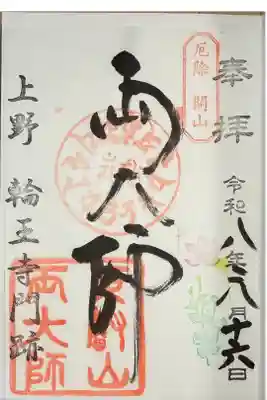 奉拝
令和八年八月十六日
厄除 開山
両大師
上野 輪王寺門跡
東叡山
両大師